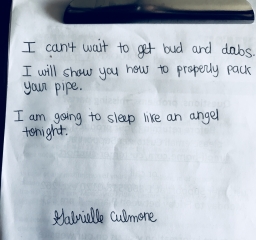 I can't wait to get bud and dabs.
I will show you how to properly pack
your pipe.
I am going to sleep like an angel
tonight.
Gabrielle Culmore